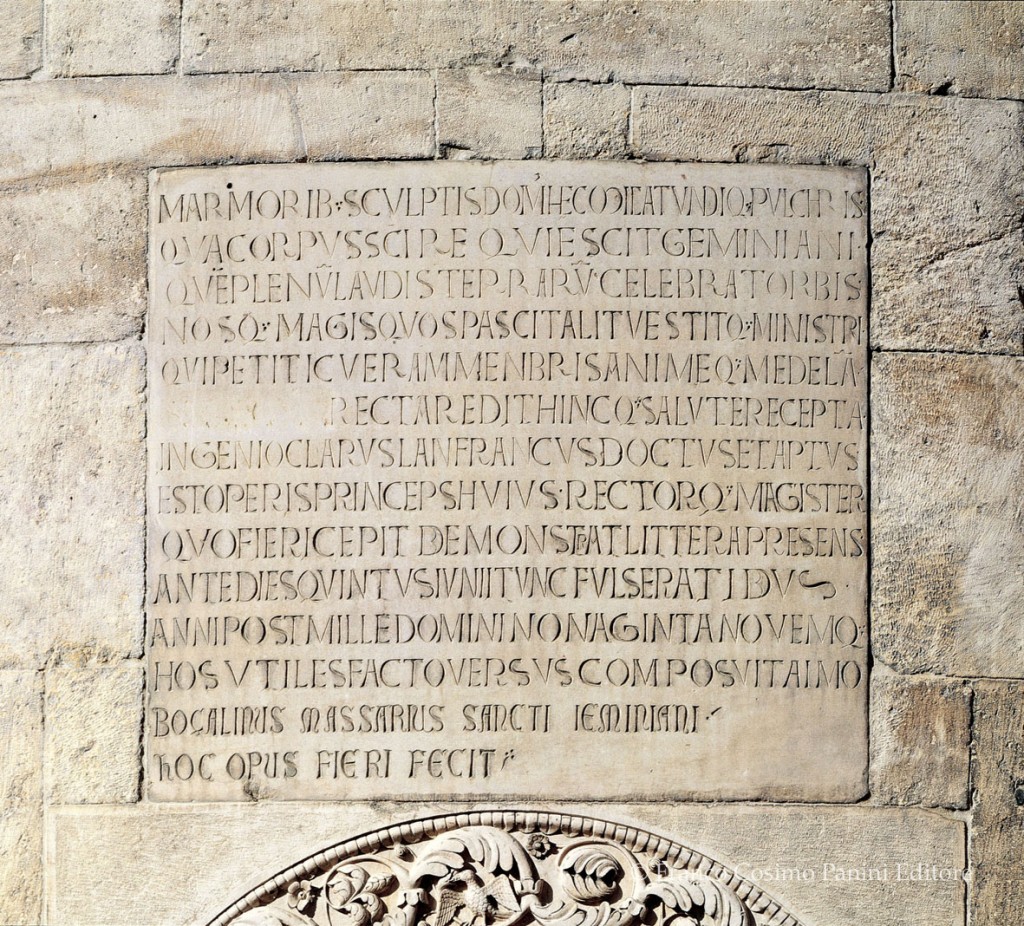 MARMORIB· SCVLPTIS DOM' HEC MICAT VNDIQ· PVLCHRIS
QVA CORPVS SCI REQVIESCIT GEMINIANI·
QVĒ PLENVM̄ LAVDIS TERRARV̄· CELEBRAT ORBIS
NOSQ· MAGIS QVOS PASCIT ALIT VESTITQ· MINISTRI
QVI PETIT IC VERAM MENBRIS ANIMEQ· MEDELĀ
RECTA REDIT HINCQ· SALVTE RECEPTA
INGENIO CLARVS LANFRANCVS DOCTVS ET APTVS
EST OPERIS PRINCEPS HVIVS· RECTORQ· MAGISTER
QVO FIERI CEPIT DEMONSTRAT LITTERA PRESENS
ANTE DIES QVINTVS IVNII TVNC FVLSERAT IDVS·
ANNI POST MILLE DOMINI NONAGINTA NOVEMQ·
HOS VTILES FACTO VERSVS COMPOSVIT AIMO
BOÇALINUS MASSARIUS SANCTI IEMINIANI·
hOC OPUS FIERI FECIT
© Franco Cosimo Panini Editore